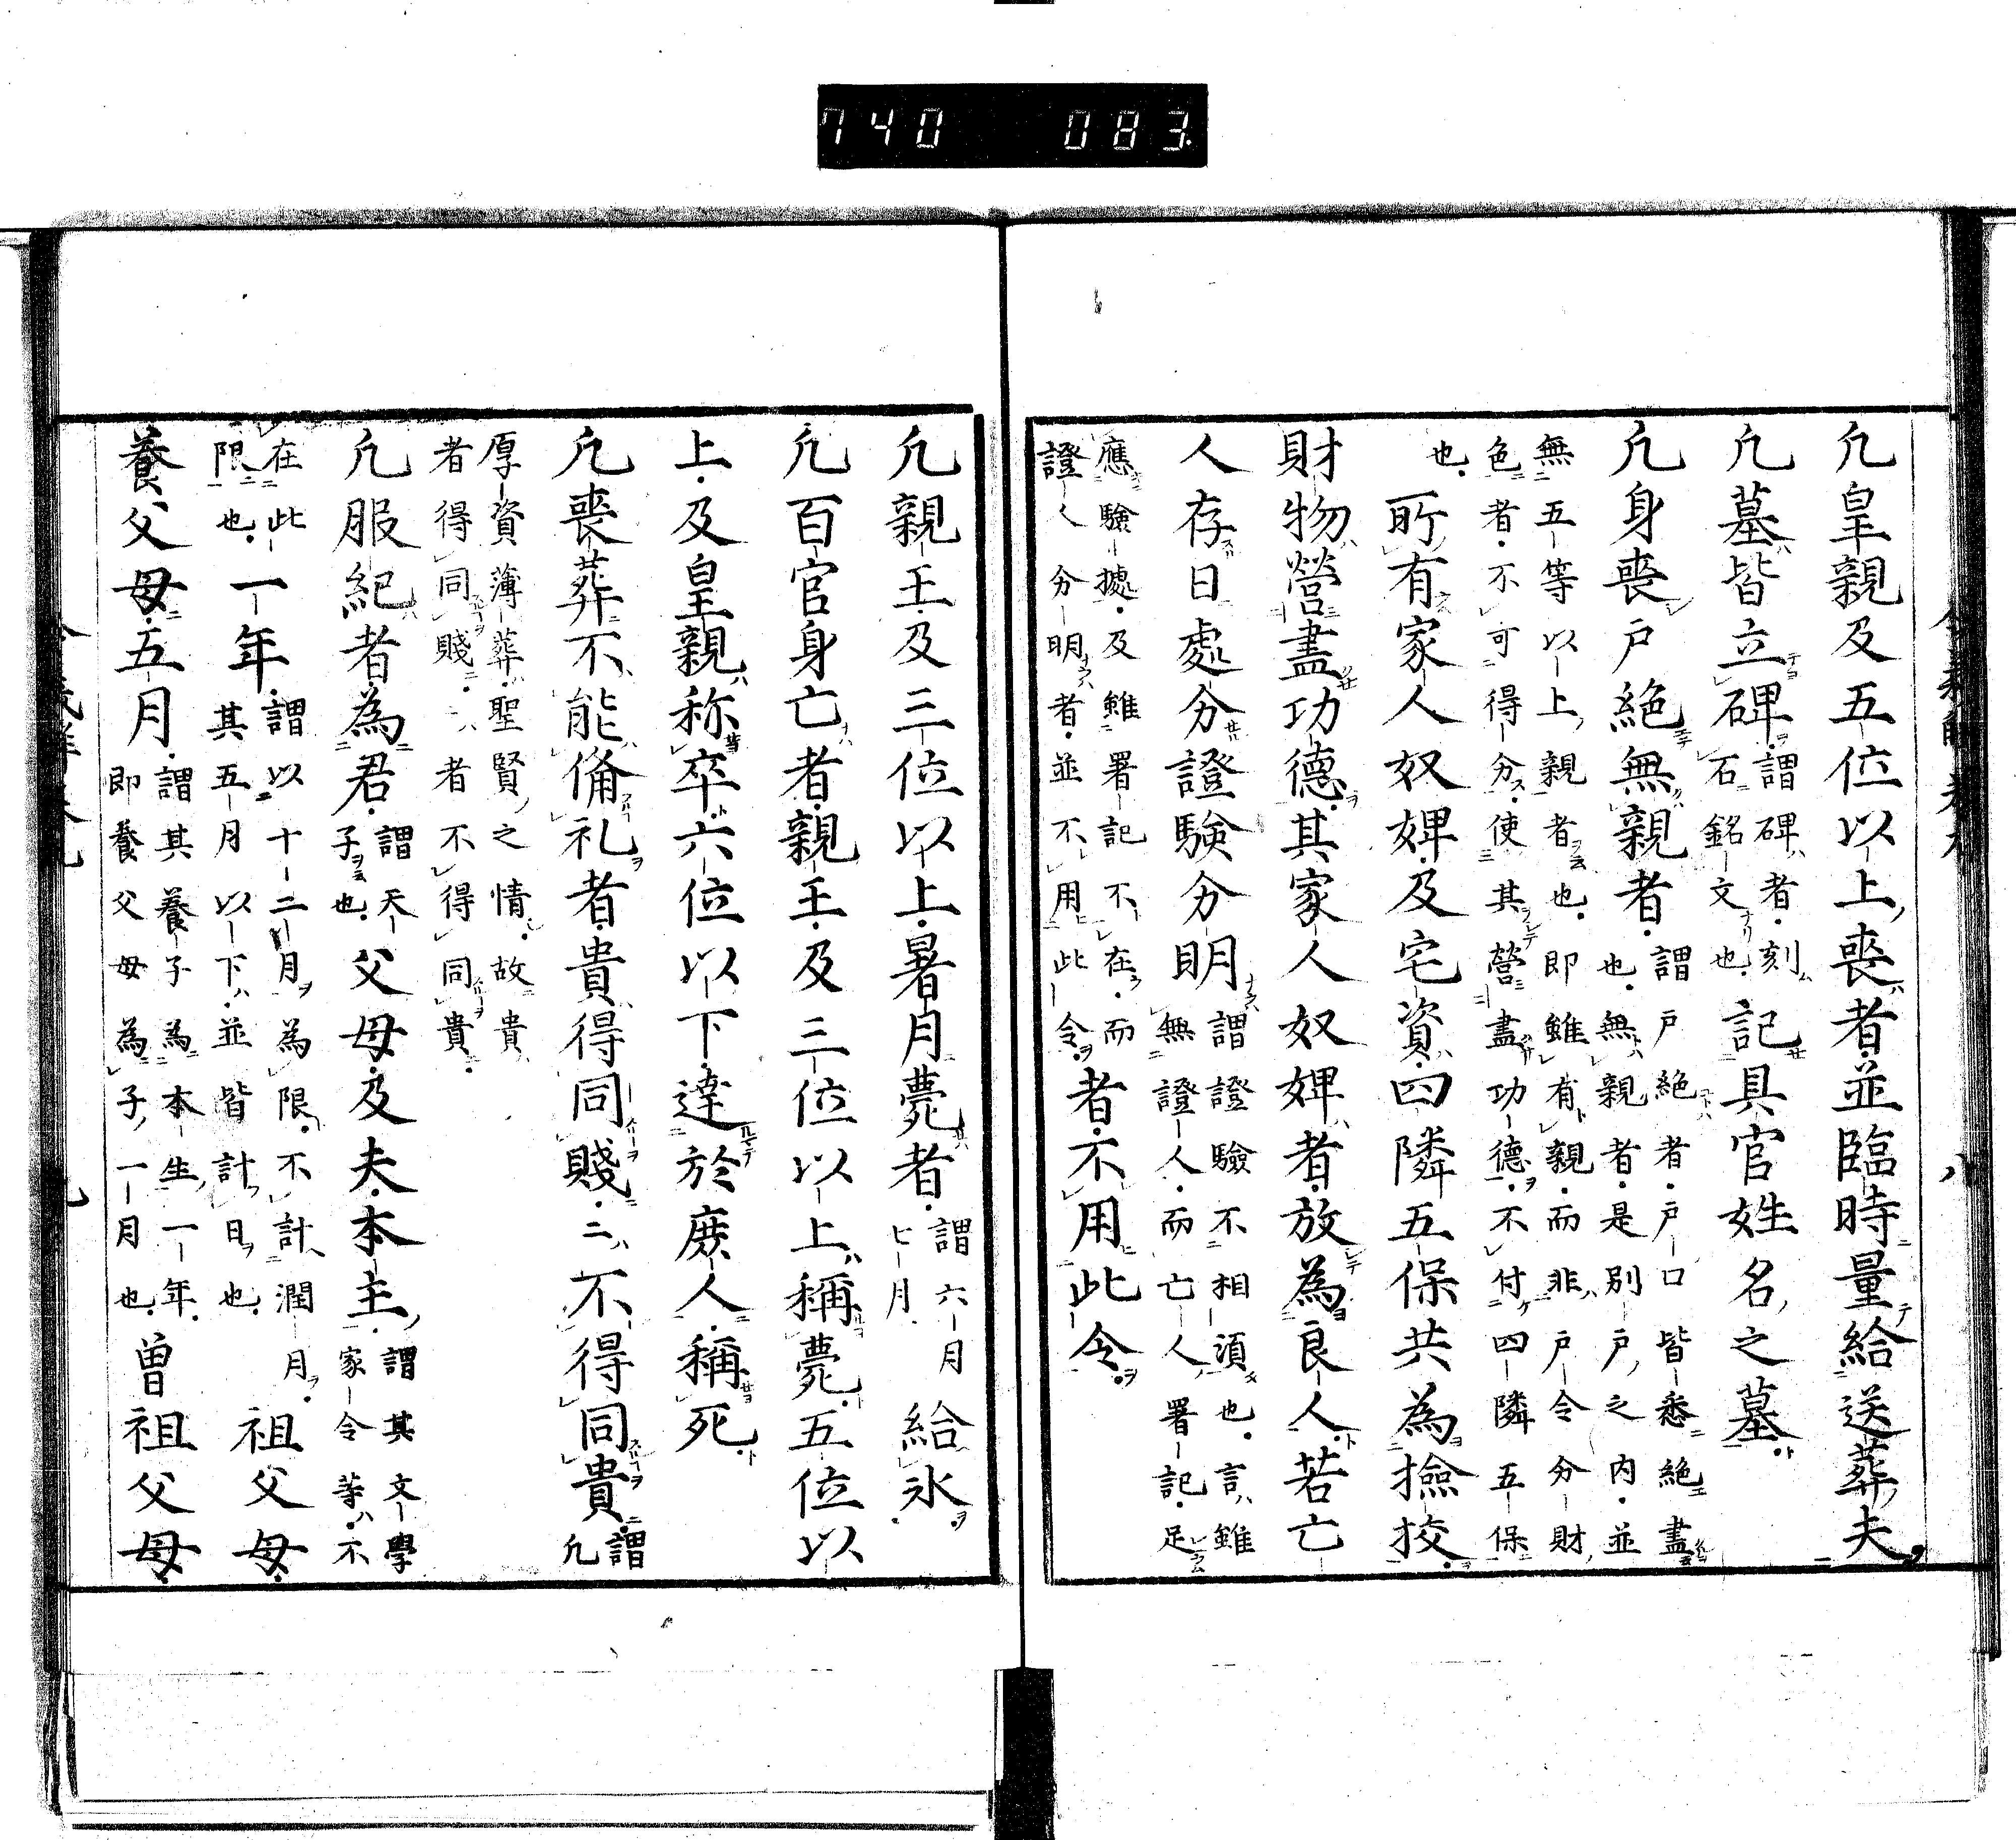 740 083
凢皇親及五位以上喪者並臨時量給送葬夫
凢墓皆立碑謂碑者刻
石銘文也記具官姓名之墓
凢身喪戸絶無親者謂戸絶者戸口皆悉絶盡
也無親者是別戸之内並
無五等以上親者也即雖有親而非戸令分財
色者不可得分使其營盡功德不付四隣五保
也所有家人奴婢及宅資四隣五保共為撿挍
財物營盡功德其家人奴婢者放為良人若亡
人存日處分證驗分明謂證驗不相須也言雖
無證人而亡人署記足
應驗據及雖署記不在而
證人分明者並不用此令者不用此令
凢親王及三位以上暑月薨者謂六月
七月給氷
凢百官身亡者親王及三位以上稱薨五位以
上及皇親称卒六位以下達於庻人稱死
凢喪葬不能俻礼者貴得同賤二不得同貴謂
凢
厚資薄葬聖賢之情故貴
者得同賤々者不得同貴
凢服紀者為君謂天
子也父母及夫本主謂其文學
家令等不
在此
限也一年謂以十二月為限不計潤月
其五月以下並皆計日也祖父母
養父母五月謂其養子為本生一年
即養父母為子一月也曽祖父母